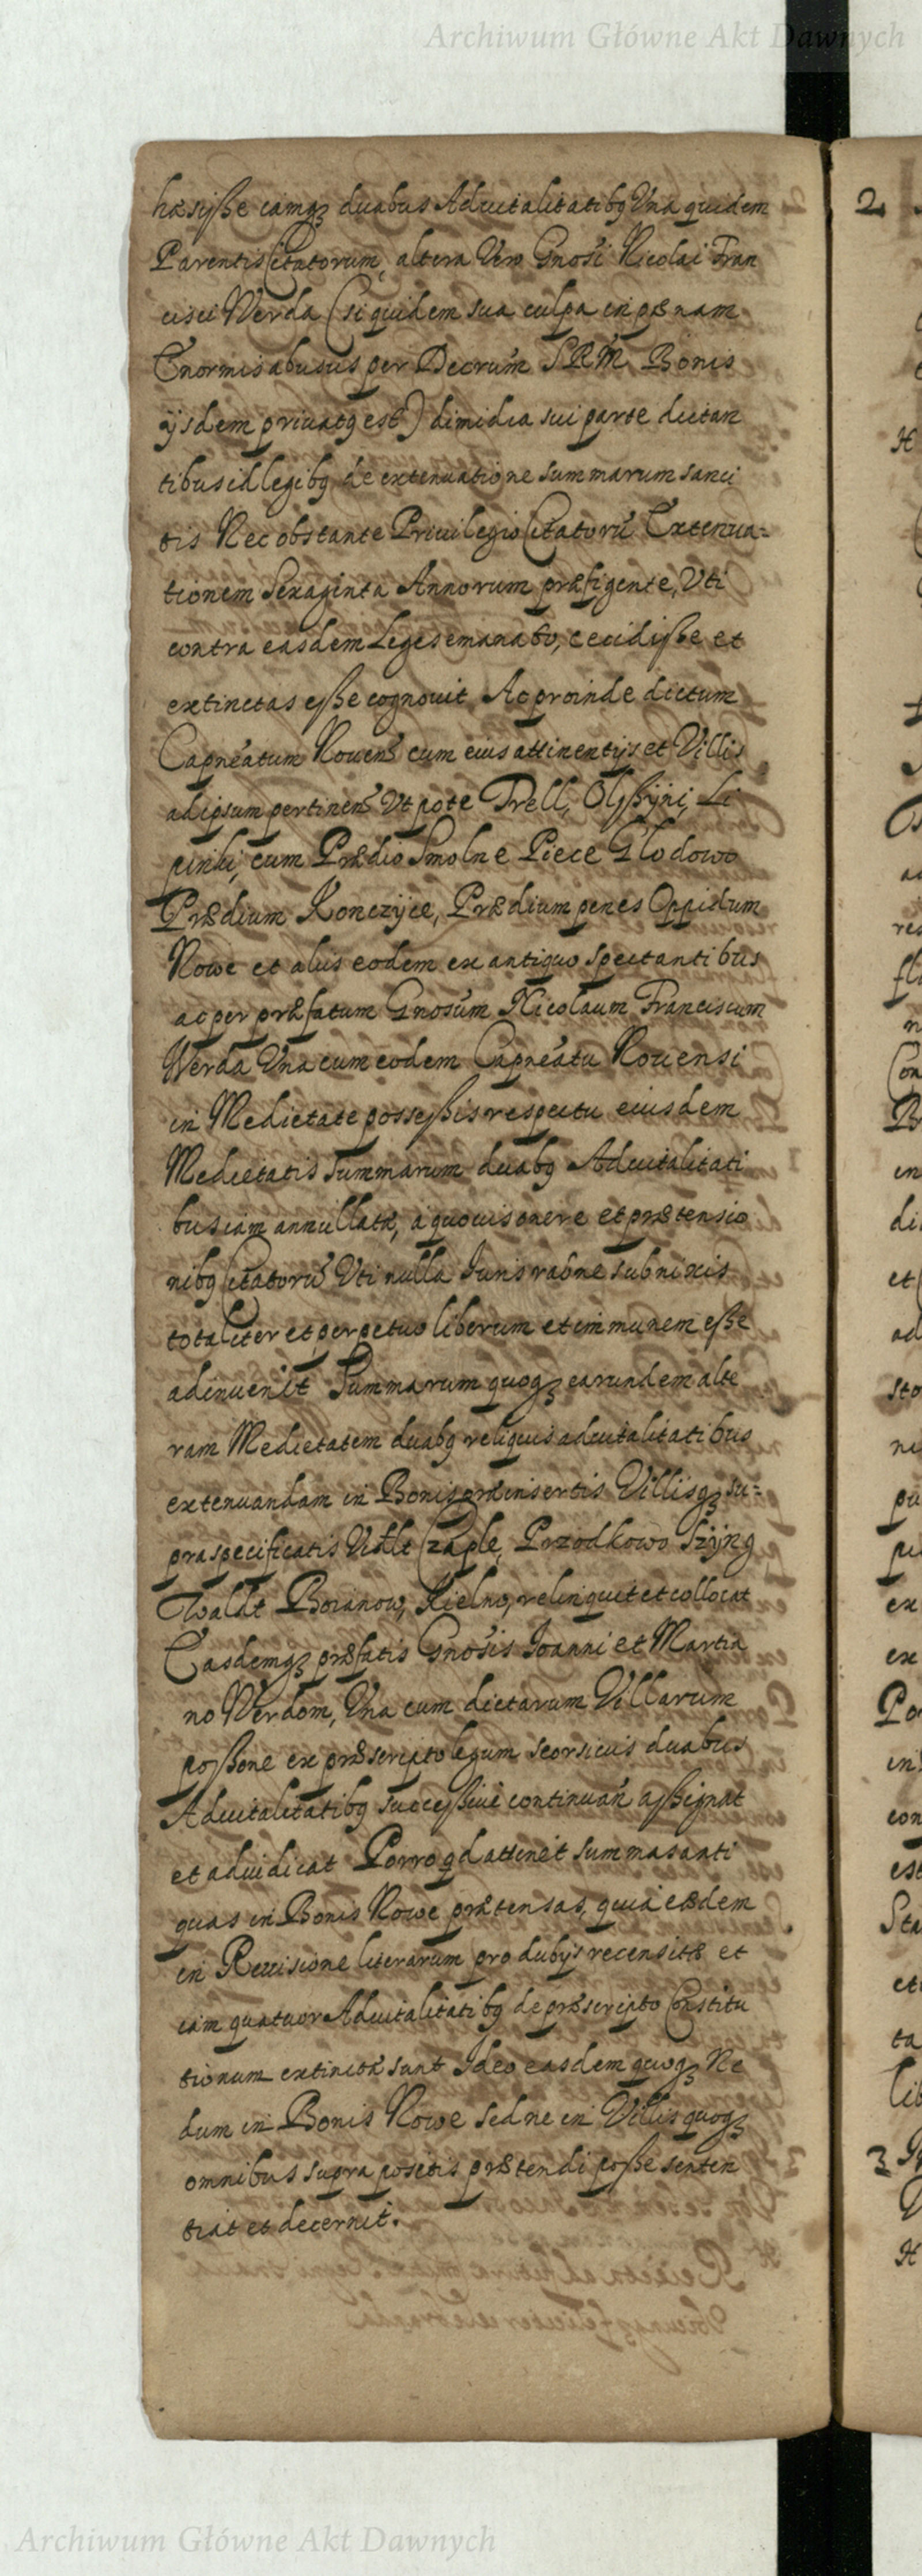 Archiwum Główne Akt Dawnych
hæsisse iamq3 duabus Aduitalitatibq Vna quidem
Parentis Citatorum, altera Vero Gnosi Nicolai Fran
cisci Werda (siquidem sua culpa in pœnam
Enormis abusus per Decrum SRM Bonis
ijsdem priuatq est) dimidia sui parte dictan
tibus id legibq de extenuatione summarum sanci
tis Nec obstante Priuilegio Citatorũ Extenua-
tionem Sexaginta Annorum præfigente, Vti
contra easdem Leges emanato, cecidisse et
extinctas esse cognouit Ac proinde dictum
Capneatum Nouens cum eius attinentijs et Villis
ad ipsum pertinen Vt pote Trell, Olsßyni, Li
pinki, cum Prædio Smolne Piece Glodowo
Prædium Konczyce, Prædium penes Oppidum
Nowe et alijs eodem ex antiquo spectantibus
ac per præfatum Gnosum Nicolaum Franciscum
Werda Vna cum eodem Capneatu Nouensi
in Medietate possessis respectu eiusdem
Medietatis Summarum duabq Aduitalitati
bus iam annullatæ, à quouis onere et prætensio
nibq Citatorũ Vti nulla Iuris raone subnixis
totaliter et perpetuo liberum et immunem esse
adinuenit Summarum quoq3 earundem alte
ram Medietatem duabq reliquis aduitalitatibus
extenuandam in Bonis præinsertis Villisq3 su-
praspecificatis Vidlt Czaple, Przodkowo Szyng
Waldt Boianow, Kielno, relinquit et collocat
Easdemq3 præfatis Gnosis Ioanni et Martia
no Werdom, Vna cum dictarum Villarum
possone ex præscripto legum seorsiuis duabus
Aduitalitatibq successiuè continuan assignat
et adiudicat Porro qd attinet summas anti
quas in Bonis Nowe prætensas, quia eædem
in Reuisione literarum pro dubijs recensitæ et
iam quatuor Aduitalitatibq de præscripto Constitu
tionum extinctæ sunt Ideo easdem quoq3 Ne
dum in Bonis Nowe sed ne in Villis quoq3
omnibus supra positis prætendi posse senten
tiat et decernit.
2
3
Archiwum Główne Akt Dawnych